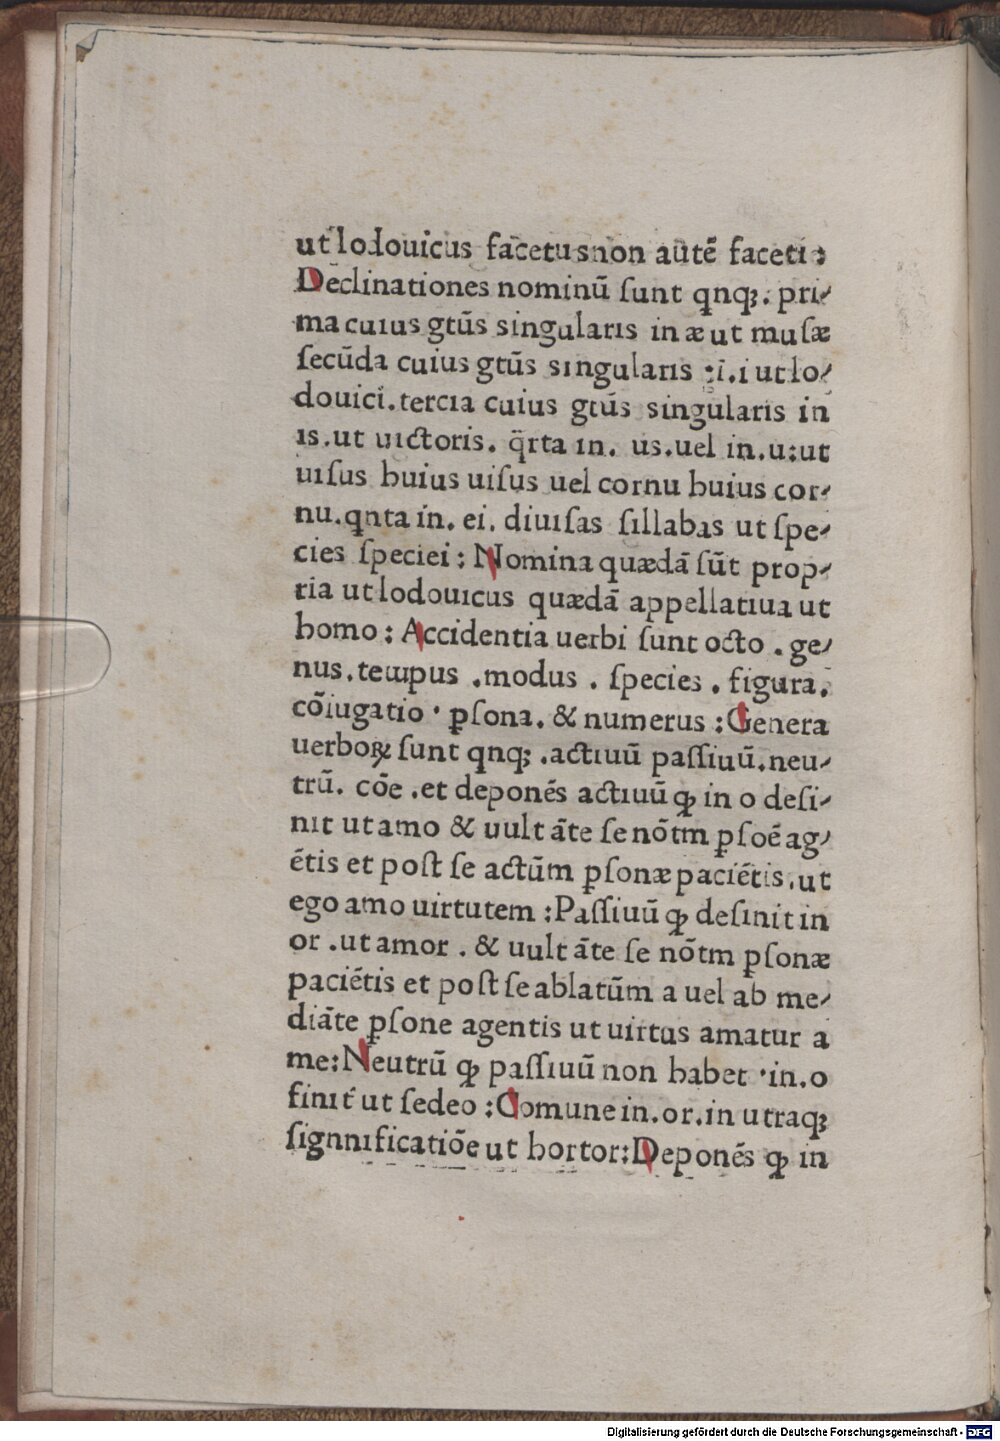 ut lodouicus facetus non autē faceti:
Declinationes nominū ſunt qnqꝫ. pri⸗
ma cuius gtūs singularis in æ ut muſæ
ſecūda cuius gtūs singularis :i.i ut lo⸗
douici.tercia cuius gtūs singularis in
is.ut uictoris. q̄rta in. us.uel in.u:ut
uiſus huius uiſus uel cornu huius cor⸗
nu.qnta in. ei. diuiſas ſillabas ut ſpe⸗
cies ſpeciei : Nomina quædā ſūt prop⸗
ria ut lodouicus quædā appellatiua ut
homo : Accidentia uerbi ſunt octo . ge⸗
nus.tempus .modus . ſpecies . figura.
cōiugatio · ꝑſona. & numerus : Genera
uerboꝝ ſunt qnqꝫ .actiuū paſſiuū.neu⸗
trū. cōe .et deponēs actiuū ꝙ in o deſi⸗
nit ut amo & uult āte ſe nōtm ꝑſoē ag⸗
ētis et poſt ſe actūm ꝑſonæ paciētis.ut
ego amo uirtutem : Paſſiuū ꝙ deſinit in
or .ut amor . & uult āte ſe nōtm ꝑſonæ
paciētis et poſt ſe ablatūm a uel ab me⸗
diāte ꝑſone agentis ut uirtus amatur a
me: Neutrū ꝙ paſſiuū non habet ·in.o
finit̄ ut ſedeo : Comune in.or.in utraqꝫ
ſignnificatiōe ut hortor: Deponēs ꝙ in
Digitalisierung gefördert durch die Deutsche Forschungsgemeinschaft - DFG